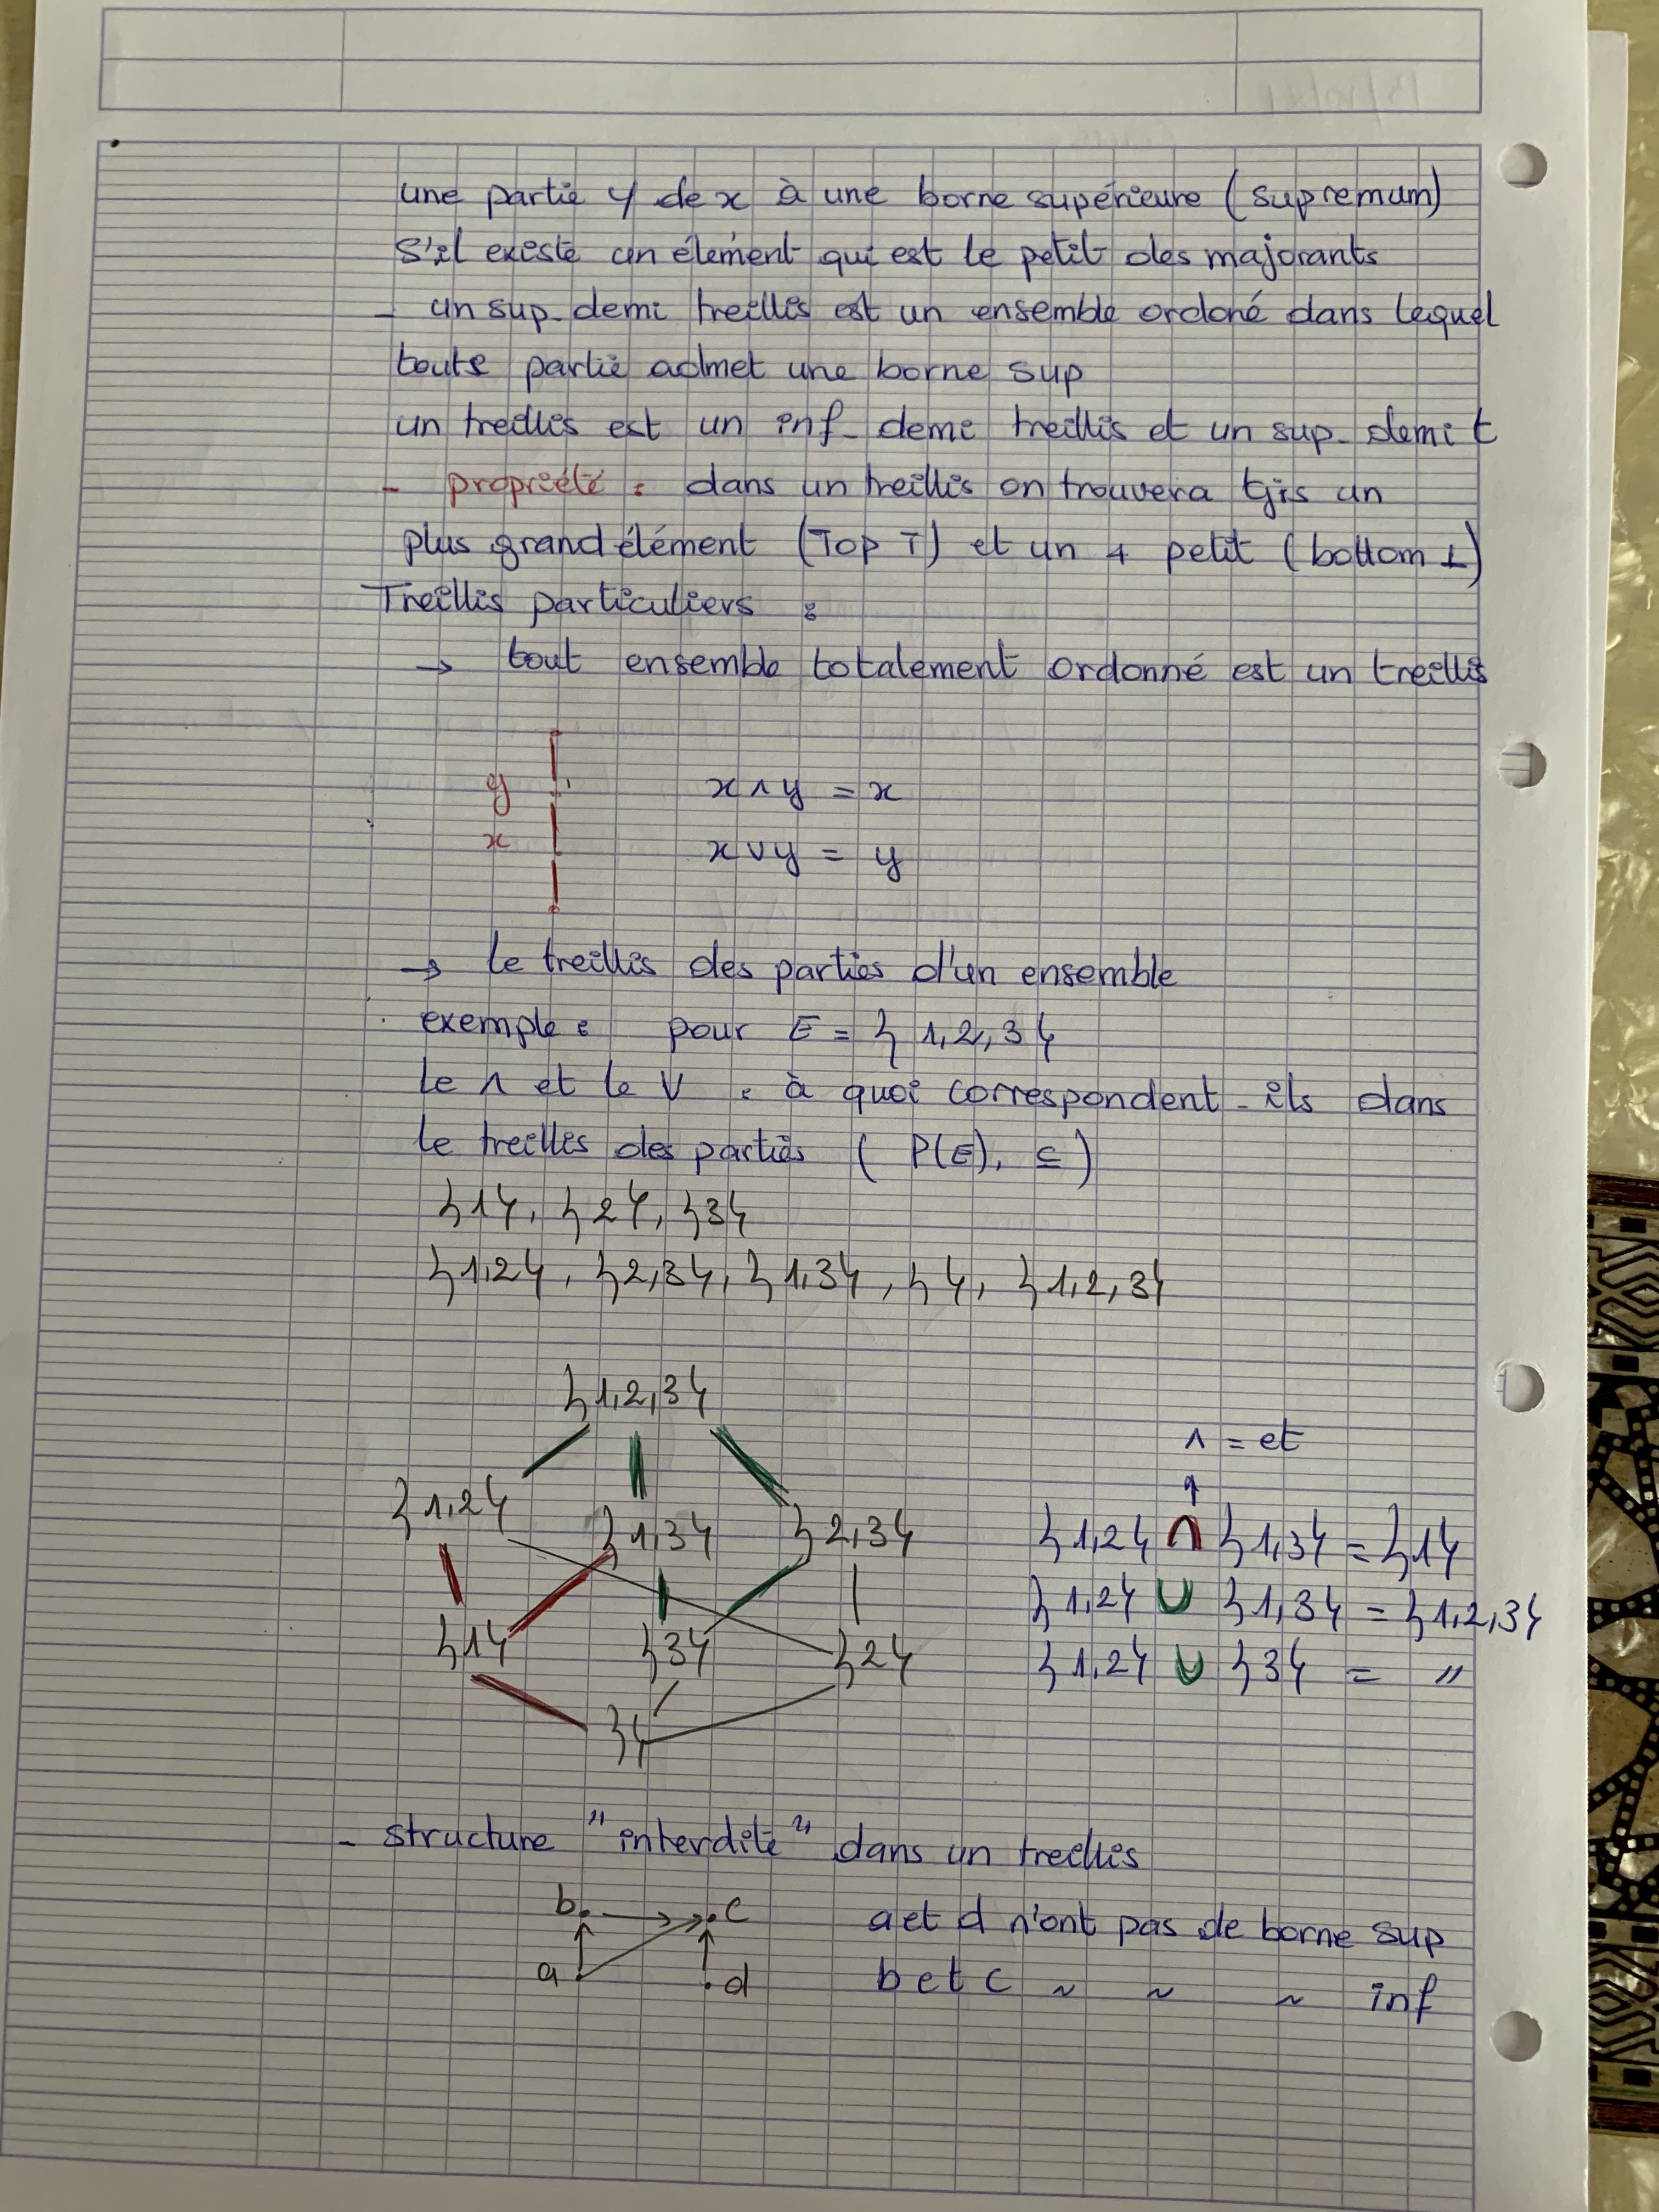 une partie Y de x à une borne supérieure (supremum)
S'il existe un élément qui est le petit des majorants
- un sup-demi treillis est un ensemble ordoné dans lequel
toute partie admet une borne sup
un treillis est un inf-demi treillis et un sup-demi t
- propriété : dans un treillis on trouvera tjrs un
plus grand élément (Top T) et un + petit (bottom ⊥)
Treillis particuliers :
→ tout ensemble totalement ordonné est un treillis
y x∧y = x
x x∨y = y
→ le treillis des parties d'un ensemble
exemple : pour E = {1,2,3}
le ∧ et le ∨ : à quoi correspondent-ils dans
le treillis des parties (P(E), ⊆)
{1}, {2}, {3}
{1,2}, {2,3}, {1,3}, { }, {1,2,3}
{1,2,3}
∧ = et
↑
{1,2} {1,3} {2,3} {1,2} ∩ {1,3} = {1}
{1,2} ∪ {1,3} = {1,2,3}
{1} {3} {2} {1,2} ∪ {3} = "
{}
- structure "interdite" dans un treillis
b c a et d n'ont pas de borne sup
a d b et c ~ ~ ~ inf